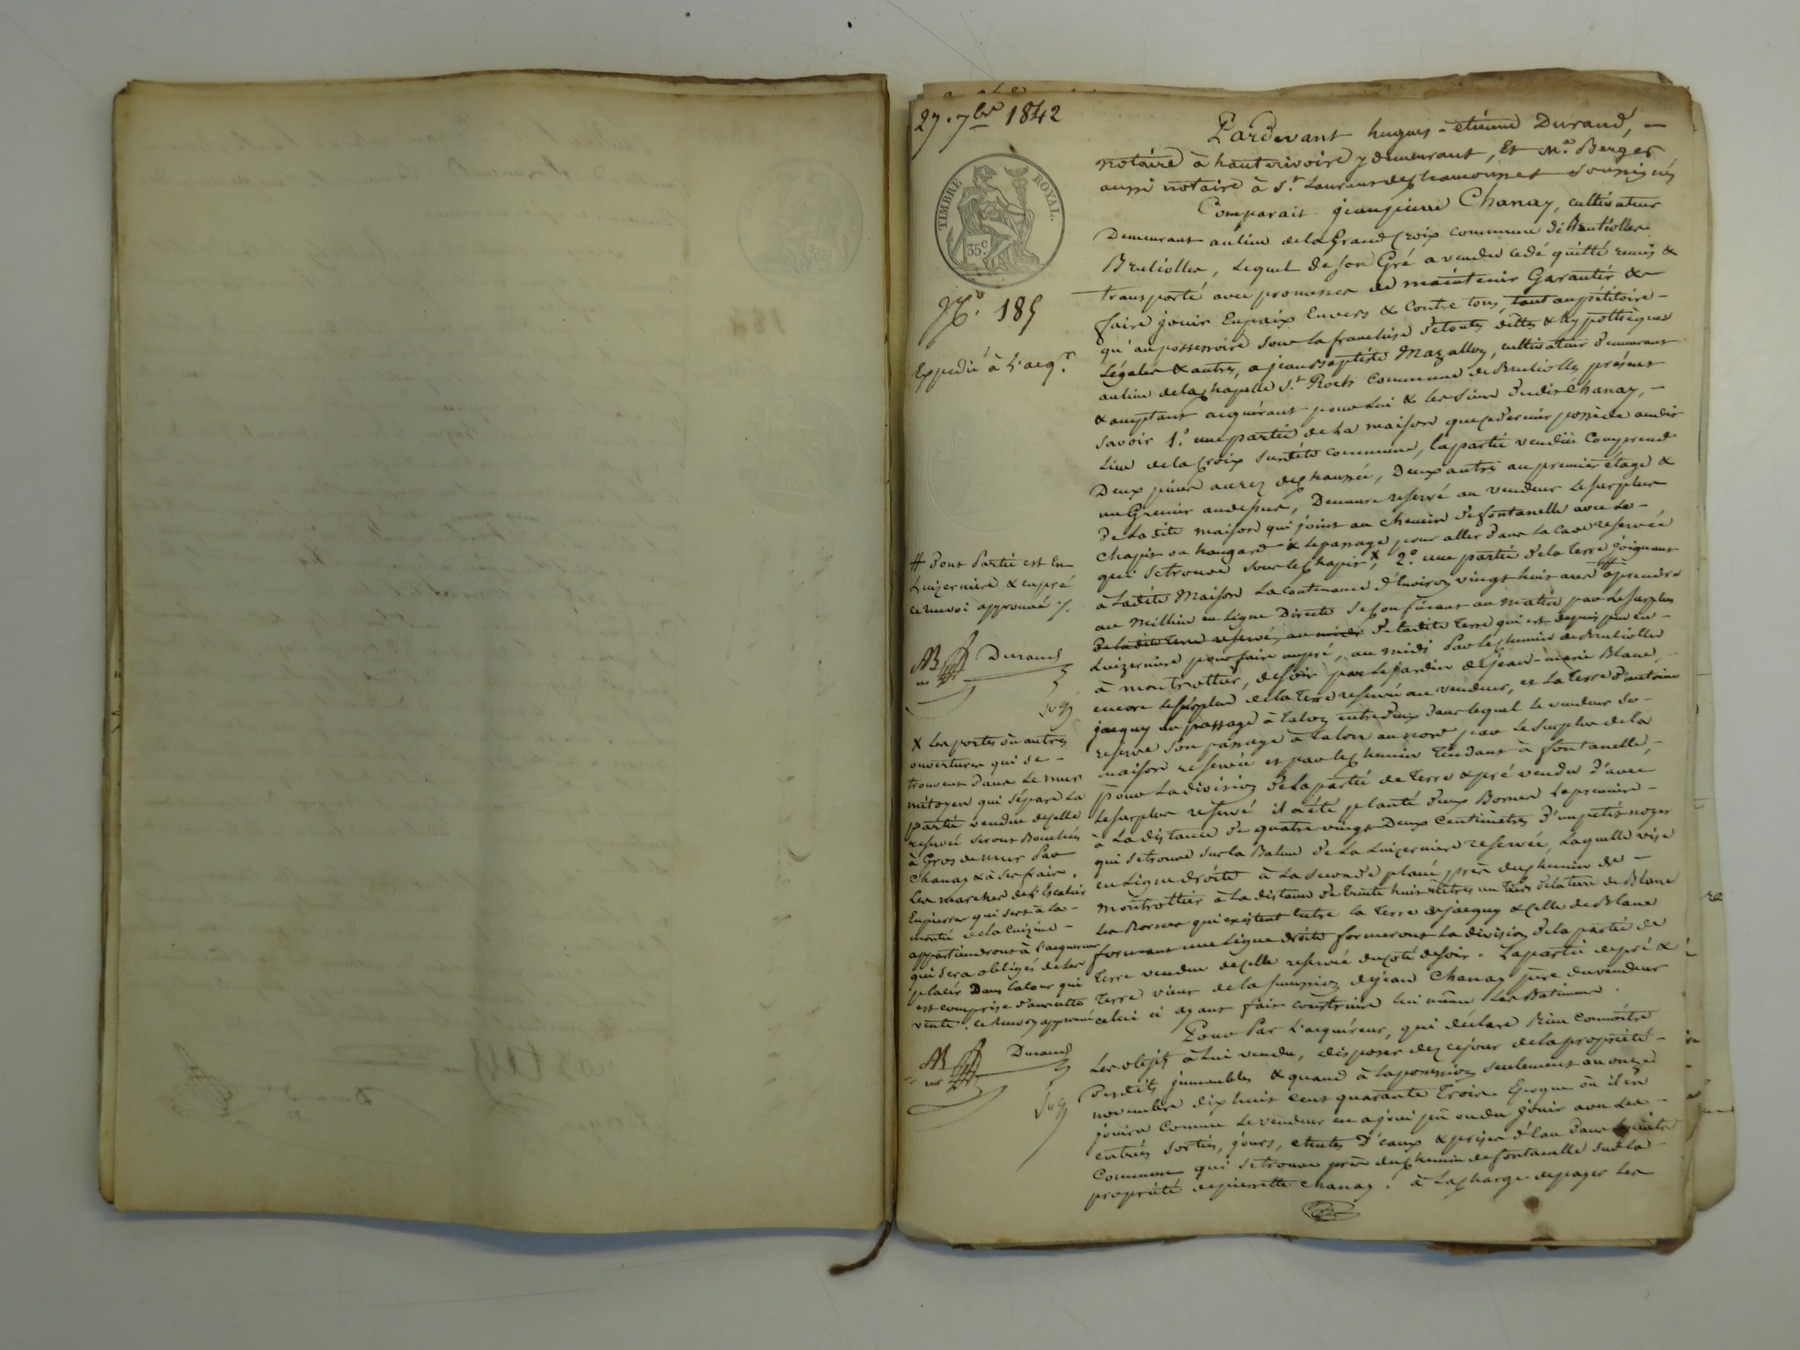 27. 7bre 1842
TIMBRE ROYAL.
35 c
No. 185
Expédié à l'acqr.
Pardevant hugues-étienne Durand,
notaire à hauterivoire y demeurant, Et Me. Berger
aussi notaire à St. Laurent de chamousset soussignés
Comparait jeanpierre Chanay, cultivateur
Demeurant au lieu de la Grand Croix commune de Bruliolles
Brulioles, Lequel de son Gré a vendu cédé quitté remis &
transporté avec promesse de maintenir Garantir &
faire jouir En paix Envers & Contre tous, tant au pétitoire
qu'au possessoire sous la franchise de toutes dettes & hypothèques
Légales & autres, a jean Baptiste Mazallon, cultivateur Demeurant
au lieu de la chapelle St. Roch Commune de Brulioles présent
& acceptant acquérant pour lui & les siens dudit Chanay,
savoir 1.o une partie de la maison que ce dernier possède au dit
Lieu de la Croix susdite commune, la partie vendue Comprend
Deux pièces au rez de chaussée, Deux autres au premier étage &
un Grenier au dessus, Demeure reservé au vendeur le surplus
de La dite maison qui joint au chemin de fontanelle avec le
Chapit ou hangard & le passage pour aller dans la Cave reservée
qui se trouve sous le chapit, X 2.o une partie de la Terre joignant
à Ladite Maison La contenance d'Environ vingt huit ares # à prendre
au Milieu en Ligne Directe Se Confinant au matin par Le surplus
de ladite Terre reservé, au midi de ladite Terre qui est depuis peu en
Luizernière pour faire un pré, au midi Par le chemin de Brulioles
à montrottier, de soir par Le jardin de jean-marie Blanc,
encore Le surplus de la Terre reservé au vendeur, et La Terre d'antoine
jacquy un passage à Talon entre deux dans lequel le vendeur se
reserve son passage à Talon au nord par Le surplus de la
maison reservée et par le chemin Tendant à fontanelle,
pour La division de la partie de Terre & pré vendu d'avec
Le surplus reservé il a été planté deux Bornes La première
à La distance de quatre vingt Deux Centimètres d'un petit noyer
qui se trouve sur la Balme de La Luizernière reservée, Laquelle vise
en Ligne droite à La seconde placée près du chemin de
Montrottier à la distance de trente huit mètres un tiers de la terre de Blanc
Les Bornes qui existent Entre la Terre de jacquy & Celle de Blanc
formant une Ligne droite formeront La division de la partie de
Terre vendue de celle reservée du coté de soir. La partie de pré &
Terre vient de la succession de jean Chanay père du vendeur
celui ci ayant fait construire lui même Les Batiments.
Pour Par L'acquéreur, qui déclare Bien Connaître
Les objets à Lui vendu, disposer dez ce jour de la propriété
Desdits immeubles & quand à la possession seulement au onze
novembre dix huit cent quarante Trois Epoque où il en
jouira Comme Le vendeur en a joui pu ou du jouir avec Les
entrées sorties, jours, chutes d'eaux & prises d'Eau dans
Commun qui se trouve près du chemin de fontanelle sur La
propriété de pierrette Chanay. à La charge de payer Les
# Dont Partie est En
Luizernière & en pré
ce renvoi approuvé ./.
Durand
X Les portes ou autres
ouvertures qui se
trouvent dans Le mur
mitoyen qui sépare La
partie vendue de celle
reservée seront Bouchées
à Gros de mur Par
Chanay & à Ses frais.
Les marches de l'Escalier
En pierre qui sert à la
montée de la Cuizine
appartiendront à l'acquereur
qui sera obligés de les
placer Dans la Cour qui
est comprise dans cette
vente. ce Renvoy approuvé
Durand